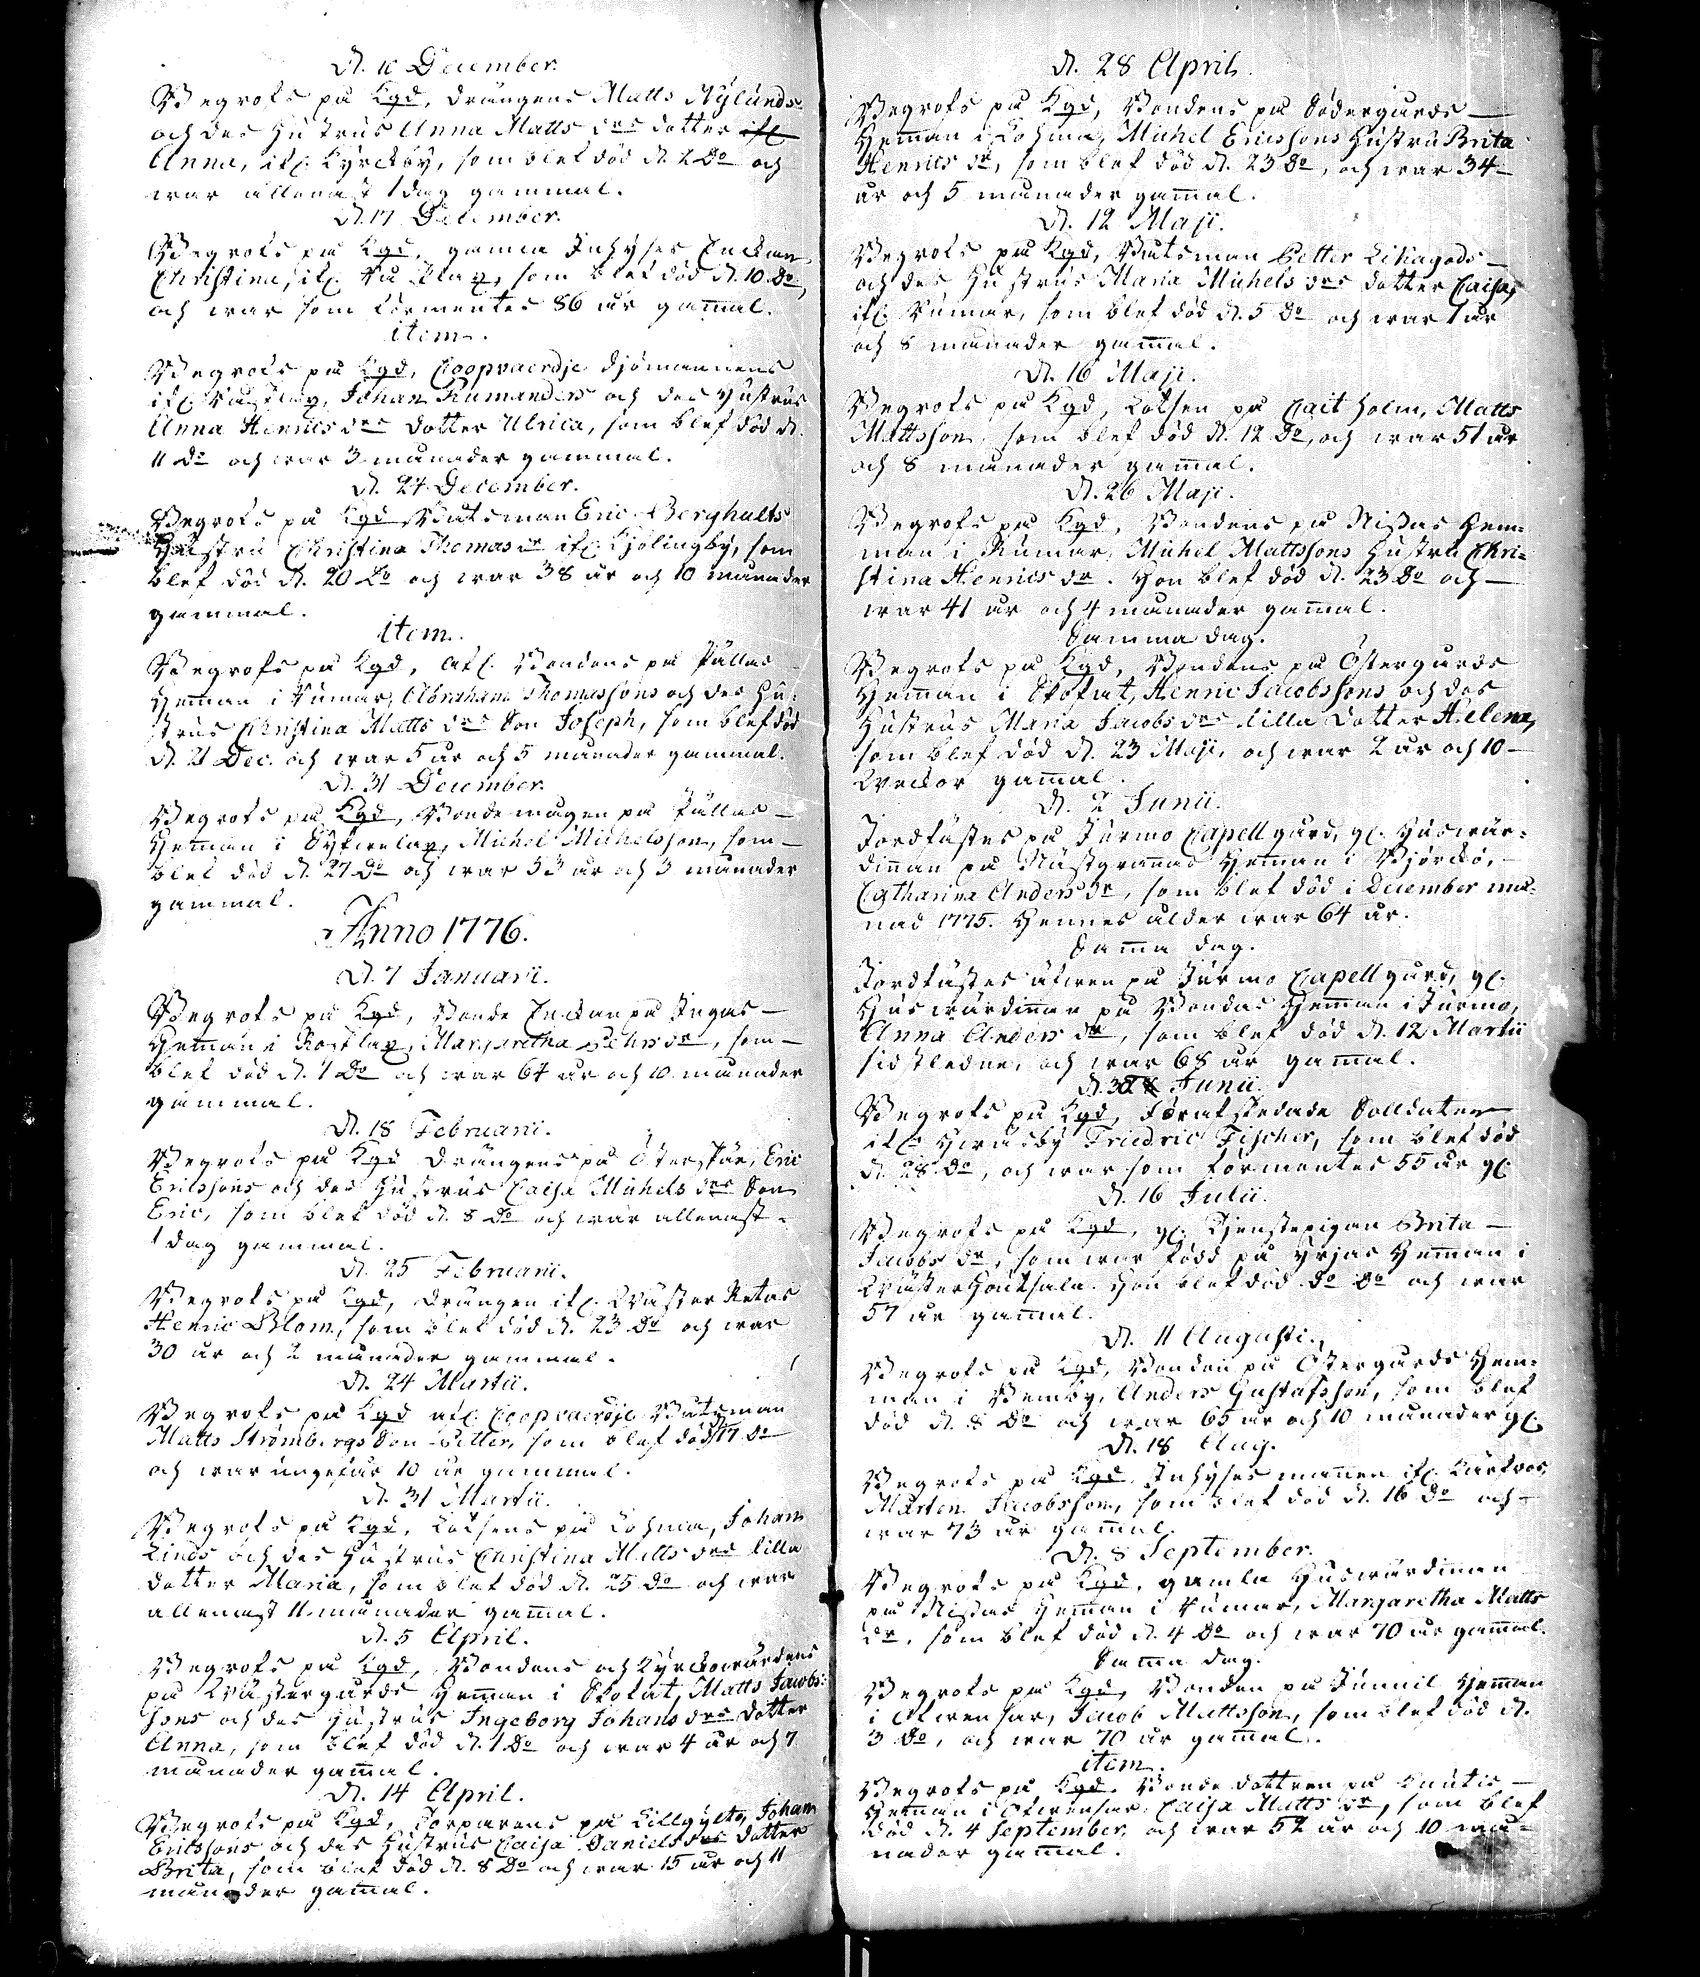 d. 10 December.
Begrofs på Kgd, drängens Matts Nylunds
och des hustrus Anna Matts drs dotter ifr.
Anna, ifr. Kyrckby, som blef död d. 2 Do och
war allenast 1 dag gammal.
d. 17 December.
Begrofs på Kgd, gamla Inhyses Enckan
Christina, ifr. som blef död d. 10 Do,
och war som förmentes 86 år gamal.
item.
Begrofs på Kgd, Coopvaerdje Sjömannens
ifr. Johan Rumanders och des hustrus
Anna Henrics drs dotter Ulrica, som blef död d.
11 Do och war 3 månader gammal.
d. 24 December.
Begrofs på Kgd Båtsman Eric Berghults
Hustru Christina Thomas dr ifr. Kjölingby, som
blef död d. 20 Do och war 38 år och 10 månader
gammal.
item.
Begrofs på Kgd, afl. Bondens på Pällas
Heman i Våmar, Abraham Thomassons och des hu-
strus Christina Matts drs Son Joseph, som blef död
d. 21 Dec. och war 5 år och 5 månader gammal.
d. 31 December.
Begrofs på Kgd, Bondemågen på Pällas
Heman i Sykwelax, Michel Michelsson, som
blef död d. 27 Do och war 53 år och 3 månader
gammal.
Anno 1776.
d. 7 Januarii.
Begrofs på Kgd, Bonde Enckan på Ingas
Heman i Roslax, Margaretha Pehrs dr, som
blef död d. 1 Do och war 64 år och 10 månader
gammal.
d. 18 Februarii.
Begrofs på Kgd Drängens på Österskär, Eric
Ericssons och des hustrus Caisa Michels drs Son
Eric, som blef död d. 8 Do och war allenast
1 dag gammal.
d. 25 Februarii.
Begrofs på Kgd, Drängen ifr. Wäster Retais
Henric Blom, som blef död d. 23 Do och war
30 år och 2 månader gammal.
d. 24 Martii.
Begrofs på Kgd afl. Coopvaerdje Båtsman
Matts Strömbergs Son Petter, som blef död d. 17 Do
och war ungefär 10 år gammal.
d. 31 Martii.
Begrofs på Kgd, Lotsens på Lohma, Johan
Linds och des hustrus Christina Matts drs lilla
dotter Maria, som blef död d. 25 Do och war
allenast 11 månader gamal.
d. 5 April.
Begrofs på Kgd, Bondens och Kyrckowärdens
på Wästergårds Heman i Skofat, Matts Jacobs-
sons och des hustrus Ingeborg Johans drs dotter
Anna, som blef död d. 1 Do och war 4 år och 7
månader gamal.
d. 14 April.
Begrofs på Kgd, Torparens på Lillgylto, Johan
Ericssons och des hustrus Caisa Daniels drs dotter
Brita, som blef död d. 8 Do och war 15 år och 11
månader gamal.
d. 28 April.
Begrofs på Kgd, Bondens på Södergårds
Heman i Lohma, Michel Ericssons hustru Brita
Henrics dr, som blef död d. 23 Do, och war 34
år och 5 månader gamal.
d. 12 Maji.
Begrofs på Kgd, Båtsman Petter Likagods
och des hustrus Maria Michels drs dotter Caisa,
ifr. Våmar, som blef död d. 5 Do och war 1 år
och 8 månader gamal.
d. 16 Maji.
Begrofs på Kgd, Lotsen på Caitholm, Matts
Mattsson, som blef död d. 12 Do, och war 51 år
och 8 månader gamal.
d. 26 Maji.
Begrofs på Kgd, Bondens på Nissas Hem-
man i Rumar, Michel Mattssons hustru Chri-
stina Henrics dr. Hon blef död d. 23 Do och
war 41 år och 4 månader gamal.
Samma dag.
Begrofs på Kgd, Bondens på Östergårds
Heman i Skofat, Henric Jacobssons och des
hustrus Maria Jacobs drs lilla dotter Helena,
som blef död d. 23 Maji, och war 2 år och 10
Weckor gamal.
d. 2 Junii.
Jordfästes på Jurmo Capellgård, gl. Huswär-
dinnan på Nästgrannas Heman i Björckö,
Catharina Anders dr, som blef död i December må-
nad 1775. Hennes ålder war 64 år.
Samma dag.
Jordfästes äfwen på Jurmo Capellgård, gl.
Huswärdinnan på Bondas Heman i Jurmo,
Anna Anders dr, som blef död d. 12 Martii
sidstledne, och war 68 år gamal.
d. 30 Junii.
Begrofs på Kgd, förafskedade Solldaten
ifr. Hwäsby Friedric Fischer, som blef död
d. 28 Do, och war som förmentes 55 år gl.
d. 16 Julii.
Begrofs på Kgd, gl. Tjenstepigan Brita
Jacobs dr, som war född på Yrjas Heman i
Wäster Houtskala. Hon blef död Do Do och war
57 år gamal.
d. 11 Augusti.
Begrofs på Kgd, Bonden på Östergårds Hem-
man i Bemby, Anders Gustafsson, som blef
död d. 8 Do och war 65 år och 10 månader gl.
d. 18 Aug.
Begrofs på Kgd, Inhyses mannen ifr. Kärkvos,
Mårten Jacobsson, som blef död d. 16 Do och
war 73 år gamal.
d. 8 September.
Begrofs på Kgd, gamla Huswärdinnan
på Nissas Heman i Våmar, Margaretha Matts
dr, som blef död d. 4 Do och war 70 år gamal.
Samma dag.
Begrofs på Kgd, Bonden på Junnil Heman
i Ofwensar, Jacob Mattsson, som blef död d.
3 Do, och war 70 år gamal.
item.
Begrofs på Kgd. Bonde dottren på Knutis
Heman i Ofwensar, Caisa Matts dr, som blef
död d. 4 September, och war 52 år och 10 må-
nader gamal.